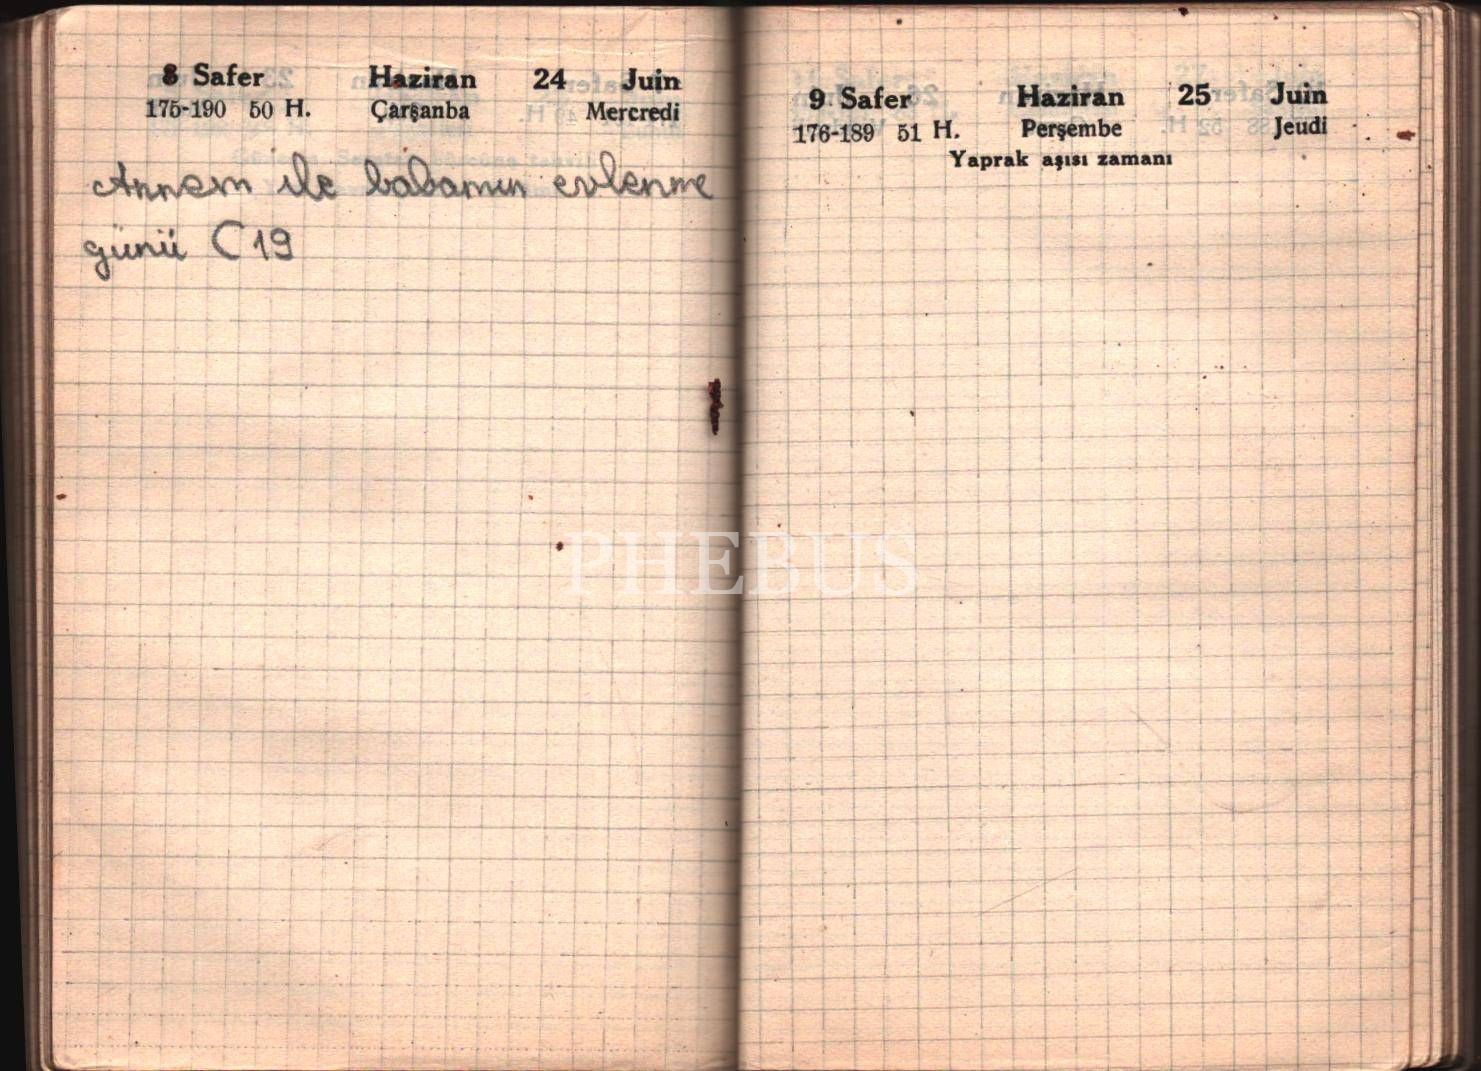 8 Safer Haziran 24 Juin
175-190 50 H. Çarşanba Mercredi
Annem ile babamın evlenme
günü (19
9 Safer Haziran 25 Juin
176-189 51 H. Perşembe Jeudi
Yaprak aşısı zamanı
PHEBUS